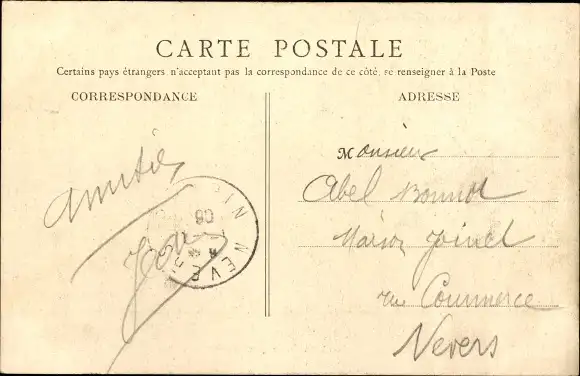 CARTE POSTALE
Certains pays étrangers n'acceptant pas la correspondance de ce côté, se renseigner à la Poste
CORRESPONDANCE
ADRESSE
Amitiés
Monsieur
Abel Bonnot
Maison Joinel
rue Commerce
Nevers